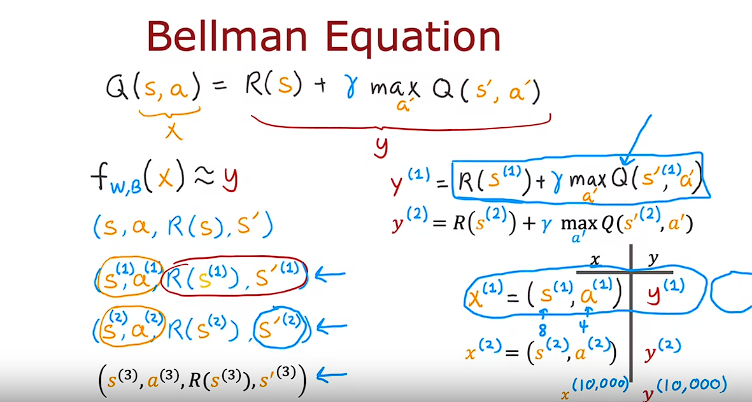 Bellman Equation
Q(s,a) = R(s) + γ max Q(s′,a′)
a′
x
y
f_{W,B}(x) ≈ y
(s,a,R(s),s′)
(s^{(1)},a^{(1)},R(s^{(1)}),s′^{(1)}) ←
(s^{(2)},a^{(2)},R(s^{(2)}),s′^{(2)}) ←
(s^{(3)},a^{(3)},R(s^{(3)}),s′^{(3)}) ←
y^{(1)} = R(s^{(1)}) + γ max Q(s′^{(1)},a′)
a′
y^{(2)} = R(s^{(2)}) + γ max Q(s′^{(2)},a′)
a′
x y
x^{(1)} = (s^{(1)},a^{(1)}) y^{(1)}
8 4
x^{(2)} = (s^{(2)},a^{(2)}) y^{(2)}
x^{(10,000)} y^{(10,000)}